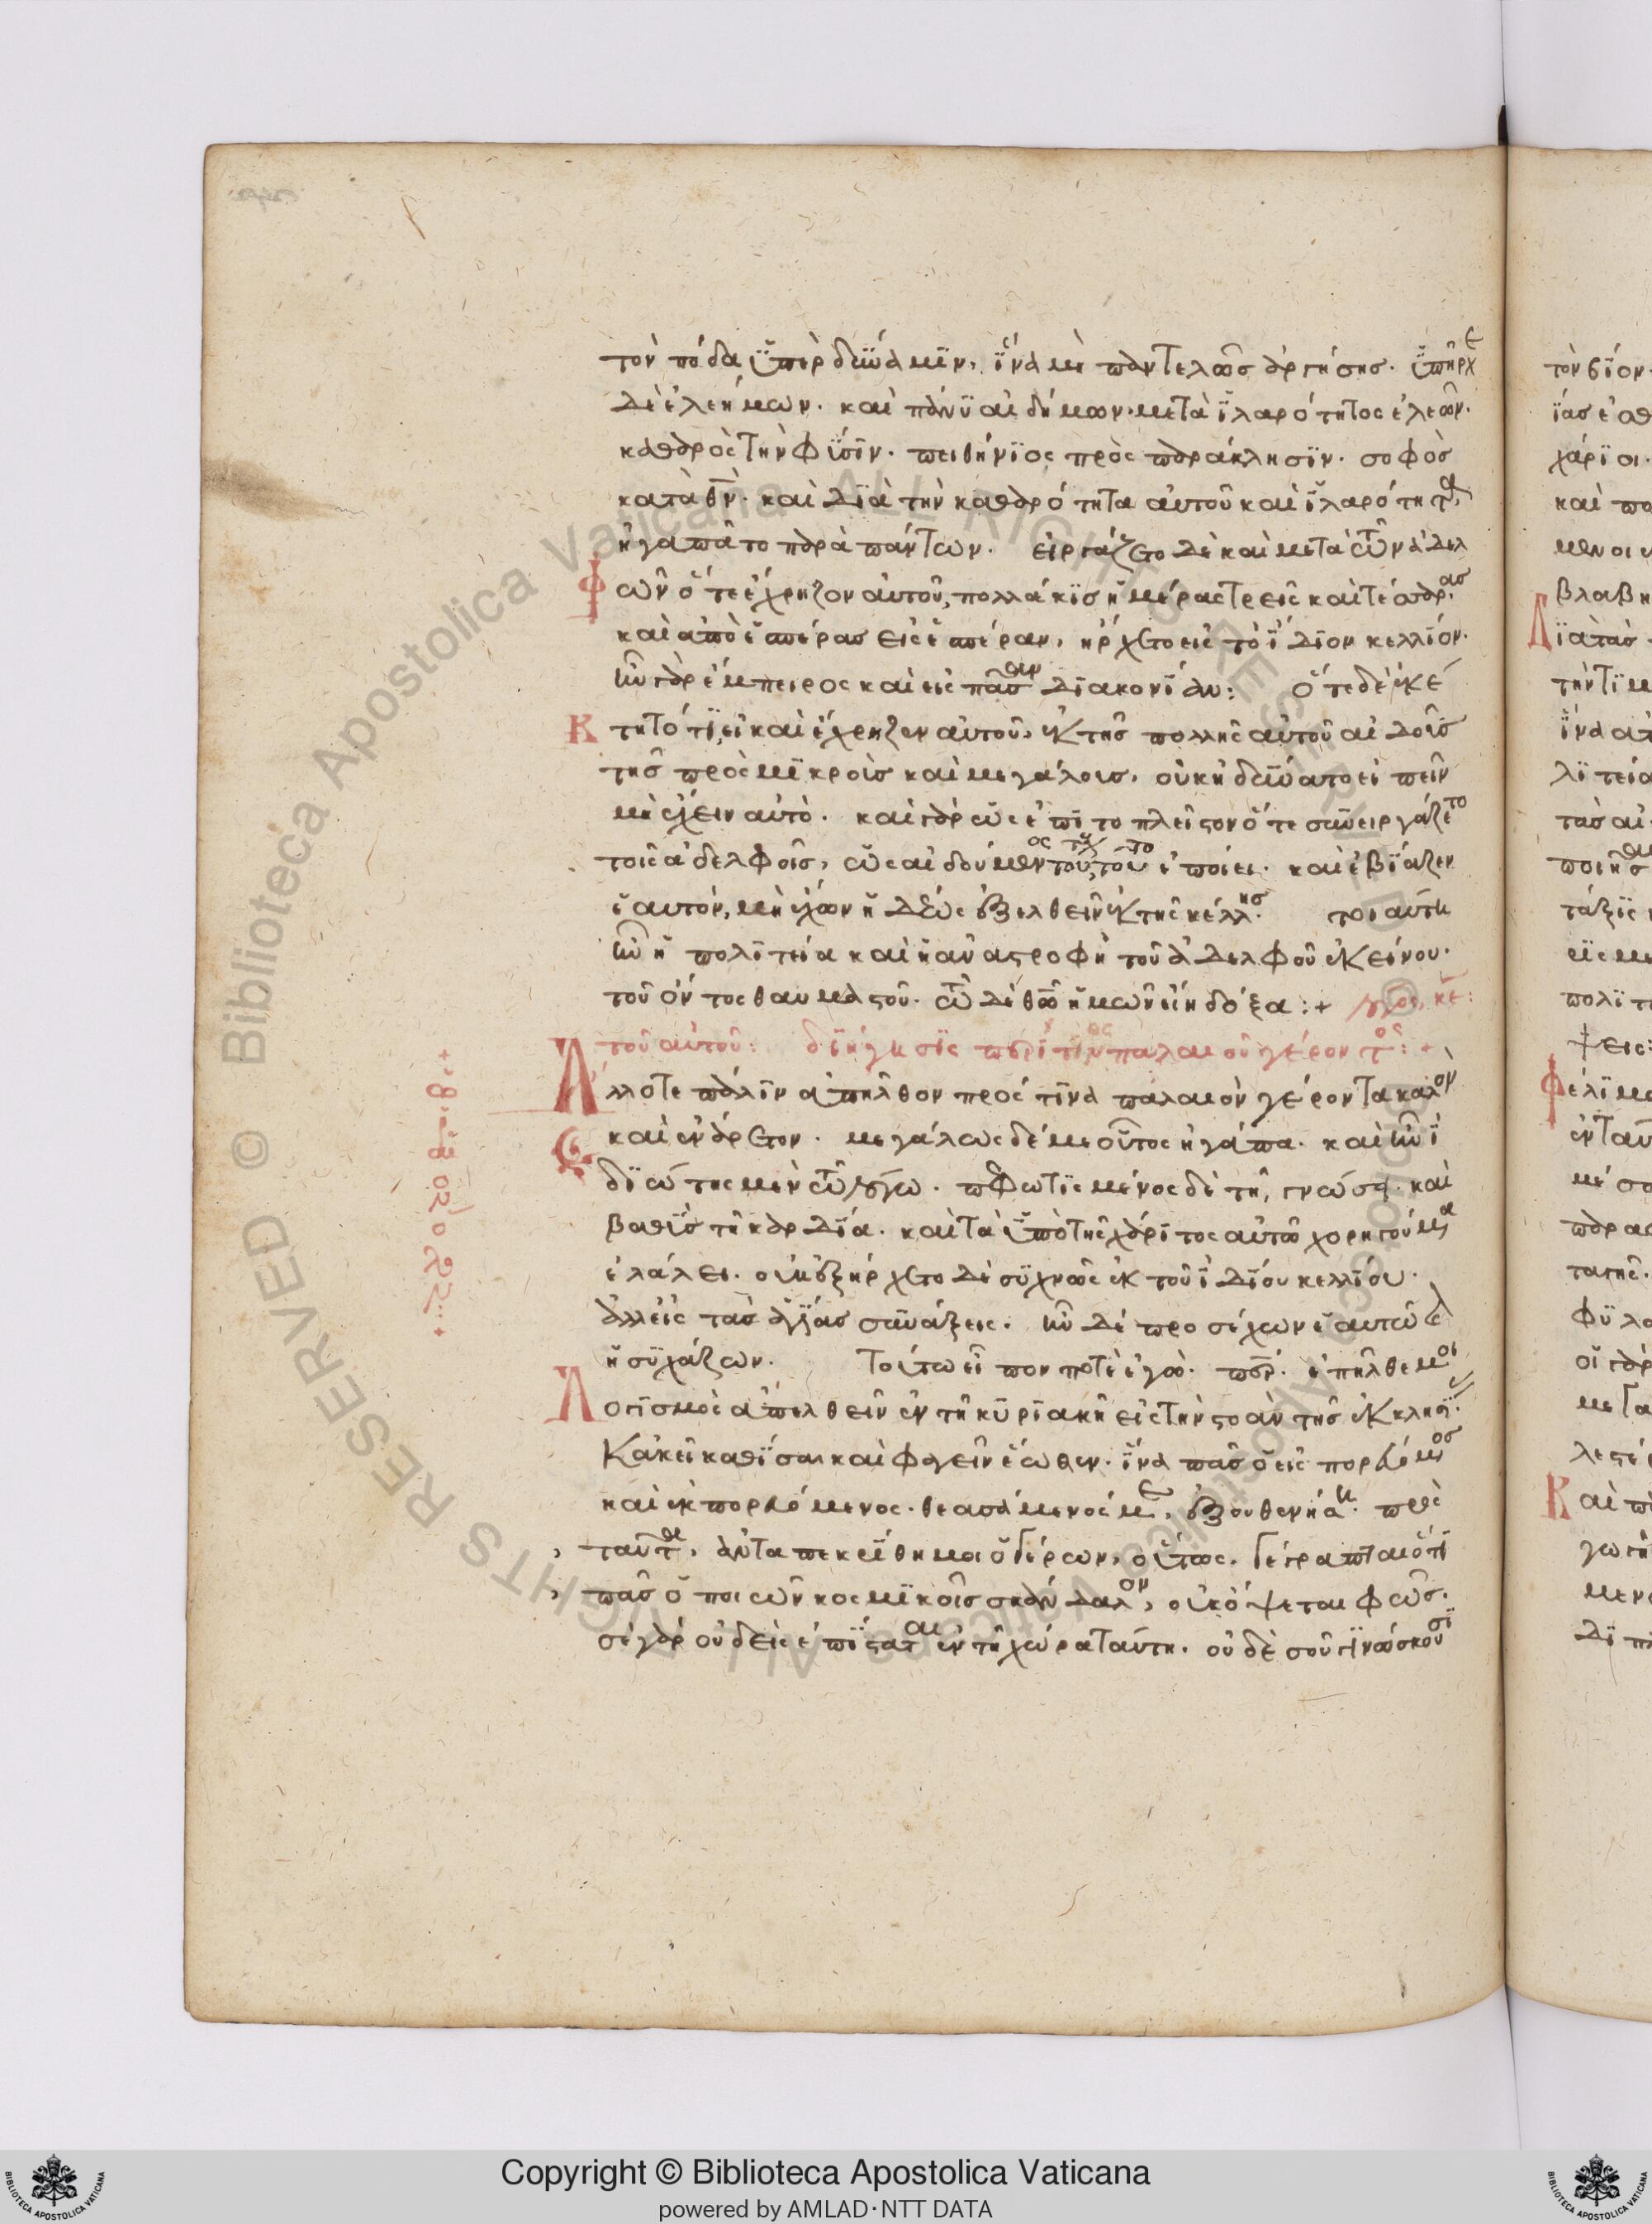 τὸν πόδα ϋπερδεϋάμϊν, ἵνα μὴ παντελῶς ἀργήσης. ϋπῆρχε
δὲ ἐλεήμων. καὶ πάνϋ αἰδήμων. μετὰ ϊλαρότητος ἐλεῶν.
καθαρὸς τὴν φϋσϊν. πειθήνϊος πρὸς παράκλησϊν. σοφὸς
κατὰ θν. καὶ δϊὰ τὴν καθαρότητα αὐτοῦ καὶ ϊλαρότητα,
ἠγαπᾶτο παρὰ πάντων. εἰργάζετο δὲ καὶ μετὰ τῶν ἀδελ
φῶν ὅτε ἔχρηζον αὐτοῦ, πολλάκϊς ἡμέρας τρεῖς καὶ τέσσαρας
καὶ ἀπὸ ἑσπέρας εἰς ἑσπέραν, ἤρχετο εἰς τὸ ἴδϊον κελλϊόν.
ἦν γὰρ ἔμπειρος καὶ εἰς πᾶσαν δϊακονϊαν: ὅτε δὲ ἐκέ
κτητό τϊ, εἰ καὶ ἔχρηζεν αὐτοῦ, ἐκ τῆς πολλῆς αὐτοῦ αἰδοῖς
τῆς πρὸς μϊκροὺς καὶ μεγάλους, οὐκ ἠδϋνατο εἰπεῖν
μὴ ἔχειν αὐτὸ. καὶ γὰρ ὡς ἐπϊτοπλεῖστον ὅτε συνειργάζετο
τοῖς ἀδελφοῖς, ὡς αἰδούμενος τούτους τοῦτο ἐποίει. καὶ ἐβϊάζεν
ἑαυτόν, μὴ ἔχων ἡδέως ἐξελθεῖν ἐκ τῆς κέλλης. τοιαύτη
ἦν ἡ πολϊτεία καὶ ἡ ἀναστροφὴ τοῦ ἀδελφοῦ ἐκείνου.
τοῦ ὄντος θαυμαστοῦ. τῶ δὲ θῶ ἡμῶν εἴη δόξα:+ λόγος κε:
τοῦ αὐτοῦ: δϊήγησϊς περί τϊνος παλαιοῦ γέροντος:+
Ἄλλοτε πάλϊν ἀπῆλθον πρός τϊνα παλαιὸν γέροντα καλὸν
καὶ ἐνάρετον. μεγάλως δέ με οὗτος ἠγάπα. καὶ ἦν ϊ
δϊώτης μὲν τῶ λόγω. πεφωτϊσμένος δὲ τῆ, γνώσει. καὶ
βαθϋς τῆ καρδϊα. καὶ τὰ ϋπὸ τῆς χάρϊτος αὐτῶ χορηγούμενα
ἐλάλει. οὐκ ἐξήρχετο δὲ σϋχνῶς ἐκ τοῦ ἰδϊου κελλϊου.
ἀλλ' εἰς τὰς ἁγϊας συνάξεις. ἦν δὲ προσέχων ἑαυτῶ καὶ
ἡσϋχάζων. Τούτω εἶπον ποτὲ ἐγὼ. πάτερ. ἐπῆλθε μοι
λογϊσμὸς ἀπελθεῖν ἐν τῆ κυρϊακῆ εἰς τὴν στοὰν τῆς ἐκκλησϊας.
Κἀκεῖ καθϊσαι καὶ φαγεῖν ἔσωθεν. ἵνα πᾶς ὁ εἰσπορευόμενος
καὶ ἐκπορευόμενος. θεασάμενός με, ἐξουθενήση. πρὸς
ταῦτα, ἀνταπεκρϊθη μοι ὁ γέρων, οὕτως. Γέγραπται ὅτϊ
πᾶς ὁ ποιῶν κοσμϊκοῖς σκάνδαλον, οὐκ ὄψεται φῶς.
σὲ γὰρ οὐδεὶς ἐπϊσταται ἐν τῆ χώρα ταύτη. οὐδὲ σοῦ γϊνώσκουσϊ